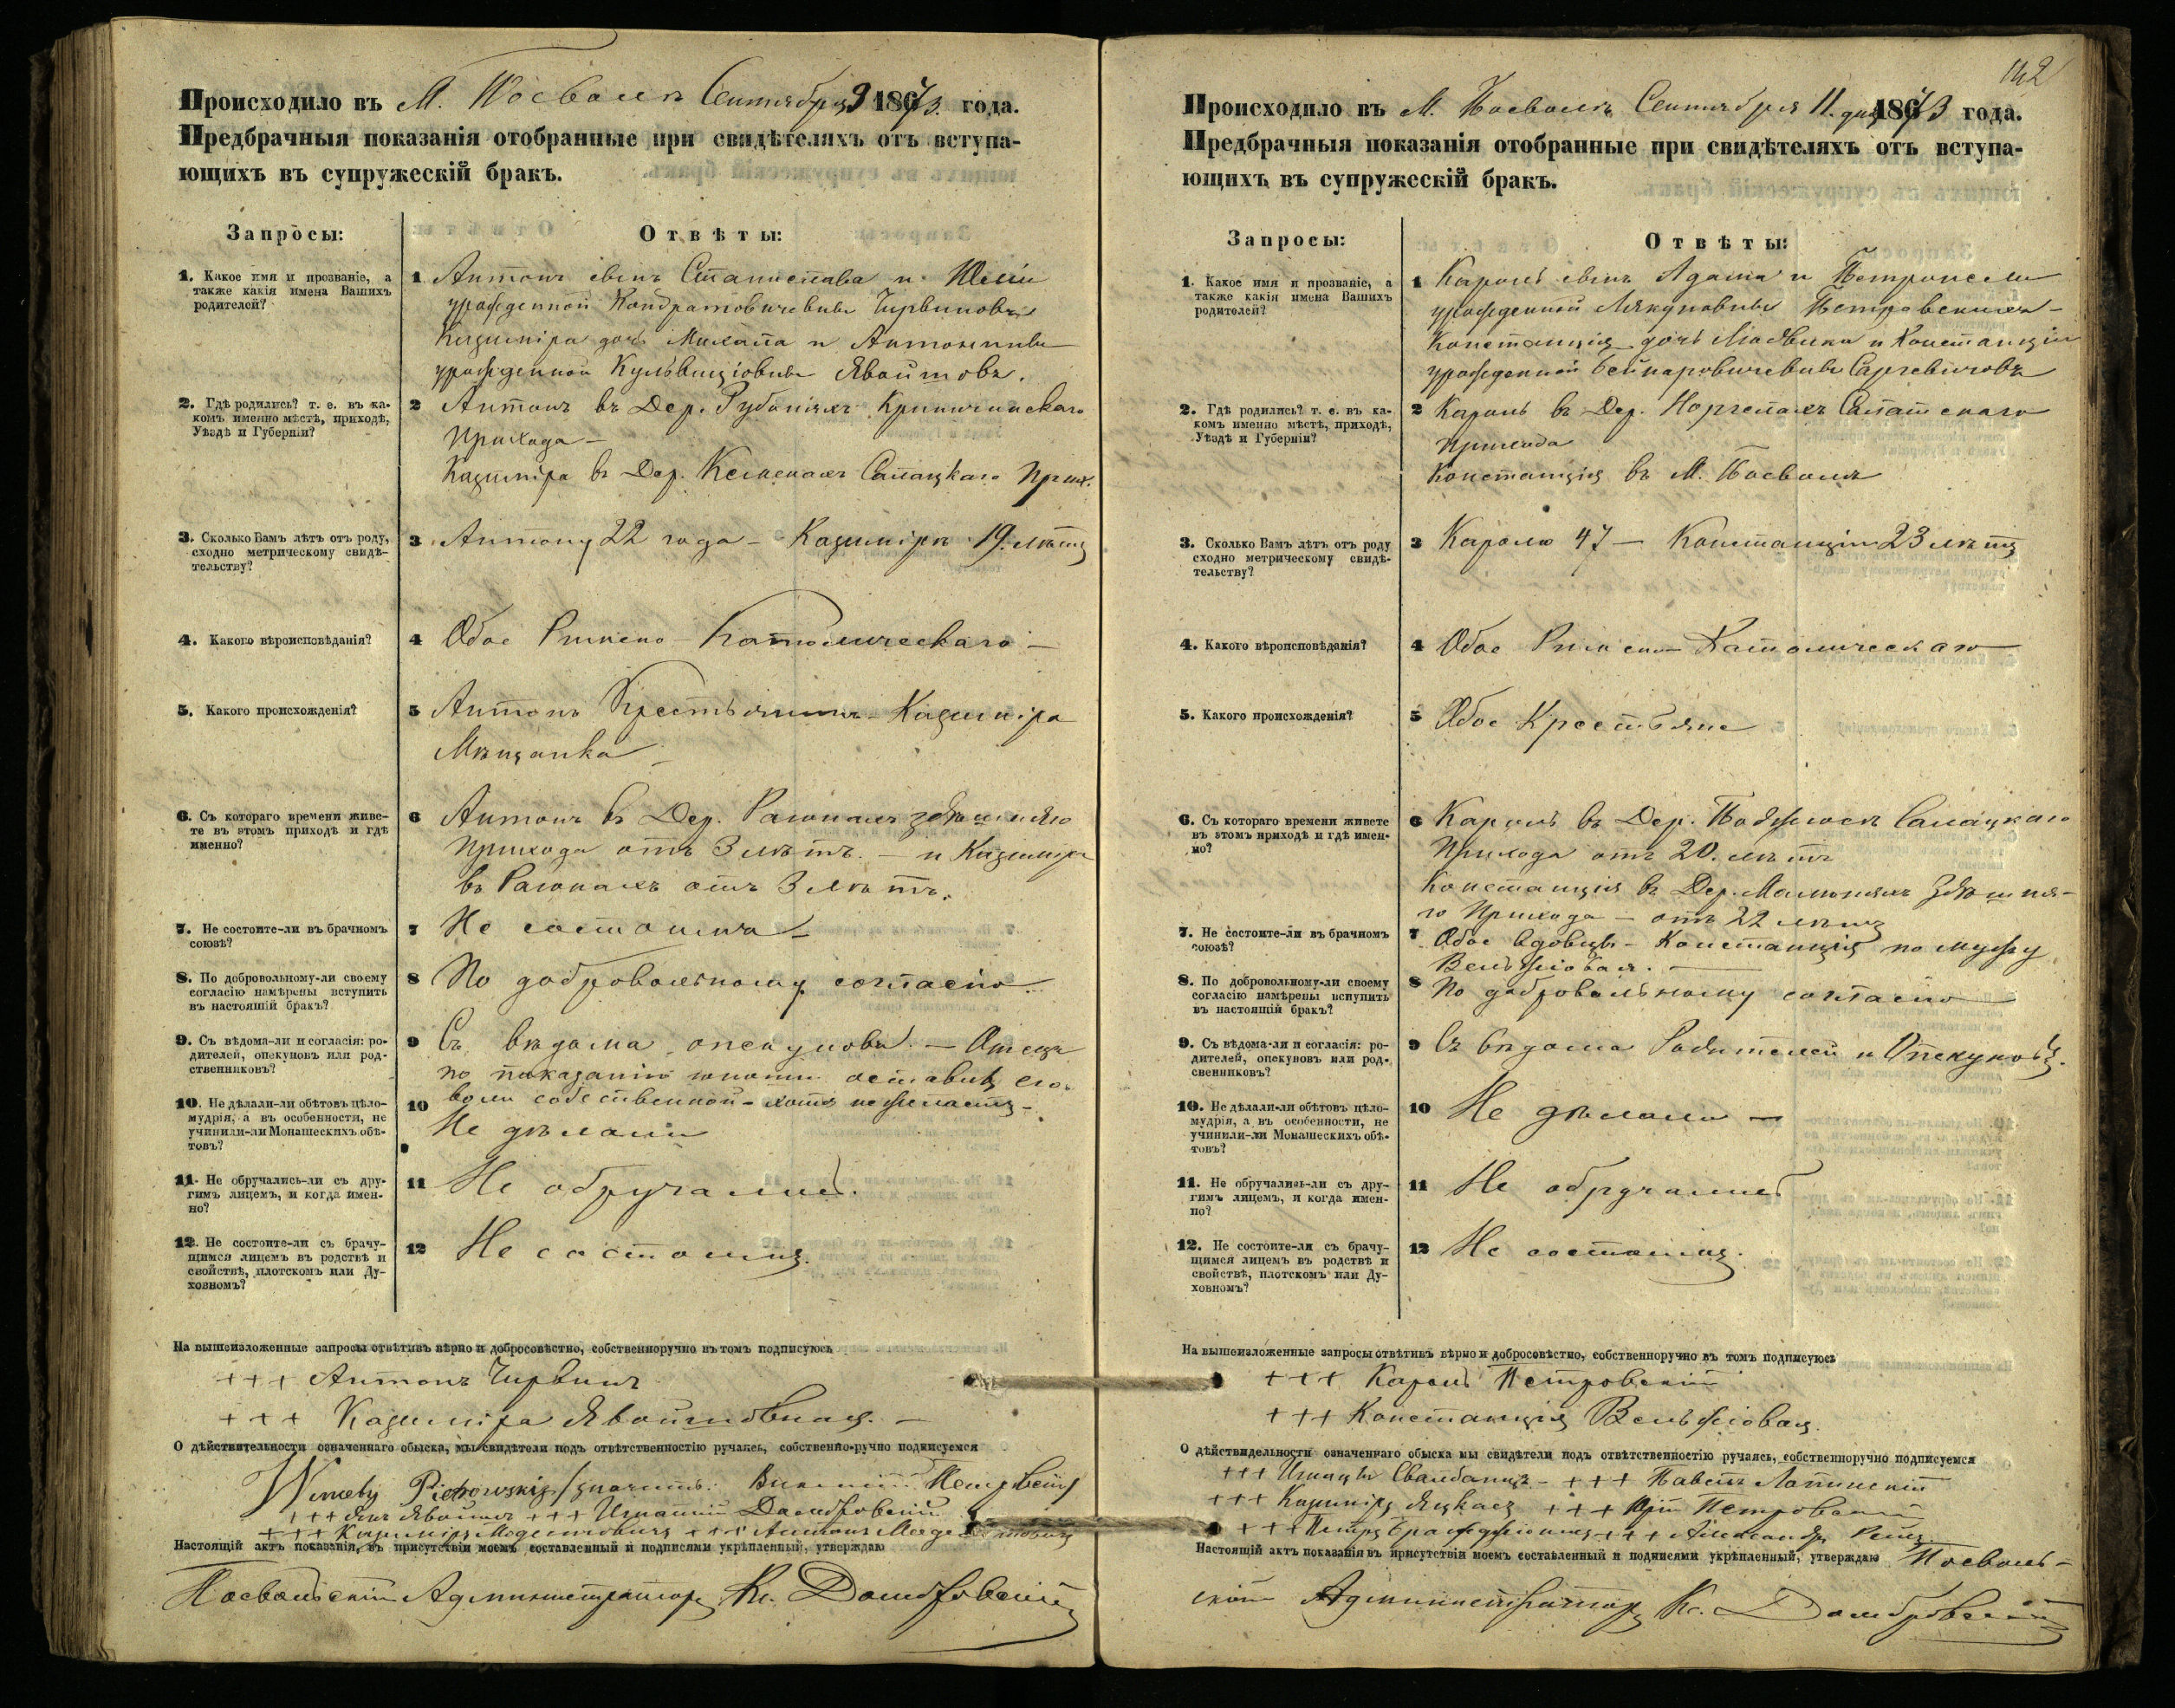 Происходило въ М. Посволѣ Сентября 9 1873 года.
Предбрачныя показанія отобранные при свидѣтеляхъ отъ вступа-
ющихъ въ супружескій бракъ.
Запросы:
Отвѣты:
1. Какое имя и прозваніе, а
также какія имена Вашихъ
родителей?
1 Антонъ сынъ Станислава и Юліи
урожденной Кондратовичевны Чирвиновъ
Казиміра дочь Михала и Антонины
урожденной Явойтовъ.
2. Гдѣ родились? т. е. въ ка-
комъ именно мѣстѣ, приходѣ,
Уѣздѣ и Губерніи?
2 Антонъ въ Дер. Криничинскаго
Прихода —
Казиміра въ Дер. Салацкаго Прих.
3. Сколько Вамъ лѣтъ отъ роду,
сходно метрическому свидѣ-
тельству?
3 Антону 22 года — Казимірѣ 19. лѣтъ
4. Какого вѣроисповѣданія?
4 Обое Римско-Католическаго —
5. Какого происхожденія?
5 Антонъ Крестьянинъ - Казиміра
Мѣщанка —
6. Съ котораго времени живе-
те въ этомъ приходѣ и гдѣ
именно?
6 Антонъ въ Дер. здѣшняго
Прихода отъ 3 лѣтъ. — и Казиміра
въ отъ 3 лѣтъ.
7. Не состоите-ли въ брачномъ
союзѣ?
7 Не состоимъ —
8. По добровольному-ли своему
согласію намѣрены вступить
въ настоящій бракъ?
8 По добровольному согласію.
9. Съ вѣдома-ли и согласія: ро-
дителей, опекуновъ или род-
ственниковъ?
9 Съ вѣдома опекуновъ. — Отецъ
по показанію оставивъ его
воли собственной -
10. Не дѣлали-ли обѣтовъ цѣло-
мудрія, а въ особенности, не
учинили-ли Монашескихъ обѣ-
товъ?
10 Не дѣлали
11. Не обручались-ли съ дру-
гимъ лицемъ, и когда имен-
но?
11 Не обручались.
12. Не состоите-ли съ брачу-
щимся лицемъ въ родствѣ и
свойствѣ, плотскомъ или Ду-
ховномъ?
12 Не состоимъ.
На вышеизложенные запросы отвѣтивъ вѣрно и добросовѣстно, собственноручно въ томъ подписуюсь
+++ Антонъ Чирвинъ
+++ Казиміра Явойтовна. —
О дѣйствительности означеннаго обыска, мы свидѣтели подъ отвѣтственностію ручаясь, собственно-ручно подписуемся
Wincenty Piotrowski / значитъ: Викентій Петровскій
+++ Янъ Явойтъ +++ Игнатій Домбровскій
+++ Казиміръ +++ Антонъ
Настоящій актъ показанія, въ присутствіи моемъ составленный и подписями укрѣпленный, утверждаю
Посвольскій Администраторъ Кс. Домбровскій
142
Происходило въ М. Посволѣ Сентября 11. дня 1873 года.
Предбрачныя показанія отобранные при свидѣтеляхъ отъ вступа-
ющихъ въ супружескій бракъ.
Запросы:
Отвѣты:
1. Какое имя и прозваніе, а
также какія имена Вашихъ
родителей?
1 Кароль сынъ Адама и Петронели
урожденной Петровскихъ —
Констанція дочь Людвика и Констанціи
урожденной
2. Гдѣ родились? т. е. въ ка-
комъ именно мѣстѣ, приходѣ,
Уѣздѣ и Губерніи?
2 Кароль въ Дер. Салатскаго
Прихода
Констанція въ М. Посволѣ
3. Сколько Вамъ лѣтъ отъ роду
сходно метрическому свидѣ-
тельству?
3 Каролю 47 — Констанціи 23 лѣтъ
4. Какого вѣроисповѣданія?
4 Обое Римско-Католическаго
5. Какого происхожденія?
5 Обое Крестьяне
6. Съ котораго времени живете
въ этомъ приходѣ и гдѣ имен-
но?
6 Кароль въ Дер. Салацкаго
Прихода отъ 20. лѣтъ
Констанція въ Дер. Здѣшня-
го Прихода — отъ 22 лѣтъ
7. Не состоите-ли въ брачномъ
союзѣ?
7 Обое Вдовцы — Констанція по мужу
Вельжіовая. —
8. По добровольному-ли своему
согласію намѣрены вступить
въ настоящій бракъ?
8 По добровольному согласію
9. Съ вѣдома-ли и согласія: ро-
дителей, опекуновъ или род-
свенниковъ?
9 Съ вѣдома Родителей и Опекуновъ.
10. Не дѣлали-ли обѣтовъ цѣло-
мудрія, а въ особенности, не
учинили-ли Монашескихъ обѣ-
товъ?
10 Не дѣлали —
11. Не обручались-ли съ дру-
гимъ лицемъ, и когда имен-
но?
11 Не обручались
12. Не состоите-ли съ брачу-
щимся лицемъ въ родствѣ и
свойствѣ, плотскомъ или Ду-
ховномъ?
12 Не состоимъ.
На вышеизложенные запросы отвѣтивъ вѣрно и добросовѣстно, собственноручно въ томъ подписуюсь
+++ Кароль Петровскій
+++ Констанція Вельжіовая.
О дѣйствидельности означеннаго обыска мы свидѣтели подъ отвѣтственностію ручаясь, собственноручно подписуемся
+++ Игнацы — +++ Павелъ Лапинскій
+++ Казиміръ +++ Юрій Петровскій
+++ Петръ +++ Александръ
Настоящій актъ показанія въ присутствіи моемъ составленный и подписями укрѣпленный, утверждаю Посволь-
скій Администраторъ Кс. Домбровскій